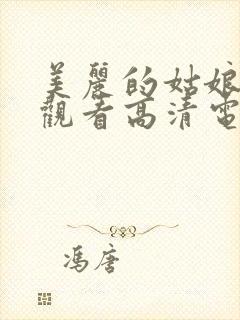 美麗的姑娘
觀看高清電
馮唐